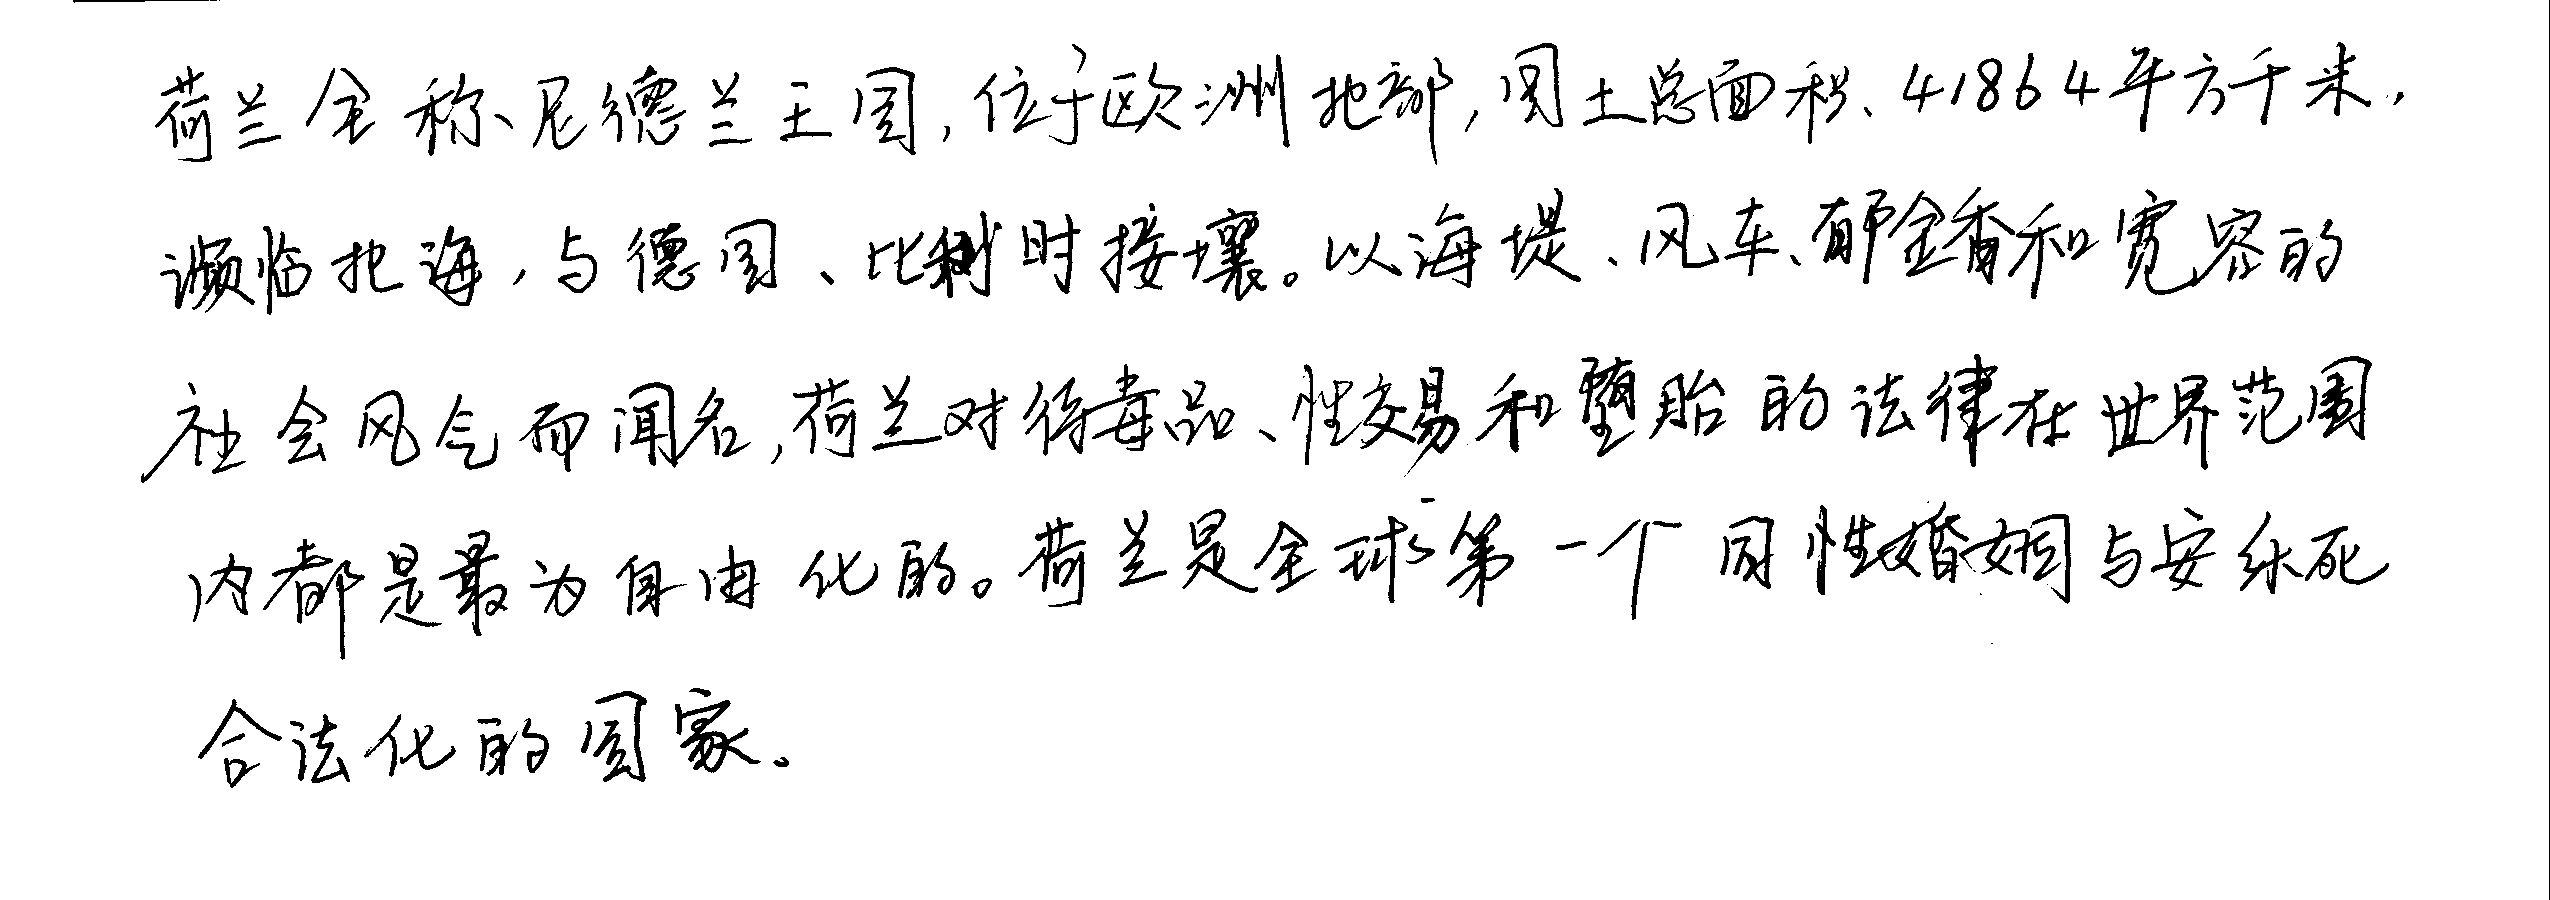 荷兰全称尼德兰王国，位于欧洲北部，国土总面积、41864平方千米，
濒临北海，与德国、比利时接壤。以海堤、风车、郁金香和宽容的
社会风气而闻名，荷兰对待毒品、性交易和堕胎的法律在世界范围
内都是最为自由化的。荷兰是全球第一个同性婚姻与安乐死
合法化的国家。